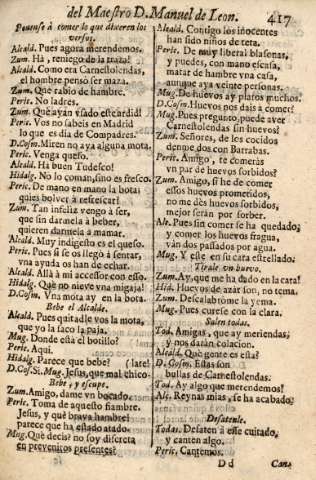 del Maestro D. Manuel de Leon. 417
Ponense à comer lo que dixeren los
versos.
Alcald. Pues agora merendemos.
Zum. Hà, reniego de la taza!
Alcald. Como era Carnestolendas,
el hombre pensò ser maza.
Zum. Què rabio de hambre.
Peric. No ladres.
Zum. Què ayun vsado estcardid!
Peric. Vos no sabeis en Madrid
lo que es dia de Compadres.
D.Cosm. Miren no aya alguna mota.
Peric. Venga queso.
Alcald. Hà buen Tudesco!
Hidalg. No lo coman, sino es fresco.
Peric. De mano en mano la bota:
quies bolver à refrescar!
Zum. Tan infeliz vengo à ser,
que sin darmela à beber,
quieren darmela à mamar.
Alcald. Muy indigesto es el queso.
Peric. Pues si se os llegò à sentar,
vna ayuda os han de echar.
Alcald. Allà à mi accessor con esso.
Hidalg. Què no nieve vna migaja!
D.Cosm. Vna mota ay en la bota.
Bebe el Alcalde.
Alcald. Pues quitadle vos la mota,
que yo la saco la paja.
Mug. Donde està el botillo?
Peric. Aqui.
Hidalg. Parece que bebe? (late!
D.Cos. Si. Mug. Jesus, que mal chico-
Bebe, y escupe.
Zum. Amigo, dame vn bocado.
Peric. Toma de aquesto fiambre.
Jesus, y què brava hambre!
parece que ha estado atado.
Mug. Què decis? no soy discreta
en preveniros presentes?
Alcald. Contigo los inocentes
han sido niños de teta.
Peric. De muy liberal blasonas,
y puedes, con mano escasa,
matar de hambre vna casa,
aunque aya veinte personas.
Mug. De huevos ay platos muchos.
D.Cosm. Huevos nos dais à comer?
Mug. Pues pregunto, puede aver
Carnestolendas sin huevos?
Zum. Señores, de los cecidos
denme dos con Barrabas.
Peric. Amigo, te comeràs
vn par de huevos sorbidos?
Zum. Amigo, si he de comer
essos huevos prometidos,
no me dès huevos sorbidos,
mejor seràn por sorber.
Alc. Pues sin comer se ha quedado,
y comer los huevos fragua,
vàn dos passados por agua.
Mug. Y este en su cara estrellado.
Tirale vn huevo.
Zum. Ay, que me ha dado en la cara!
Hid. Huevos de azàr son, no tema.
Zum. Descalabròme la yema.
Mug. Pues curese con la clara.
Salen todas.
Tod. Amigas, que ay meriendas,
y nos daràn colacion.
Alcald. Què gente es esta?
D. Cosm. Estas son
bullas de Carnestolendas.
Tod. Ay algo que merendemos?
Alc. Reynas mias, se ha acabado.
Desatenle.
Todas. Desaten à este cuitado,
y canten algo.
Peric. Cantemos.
D d Can-